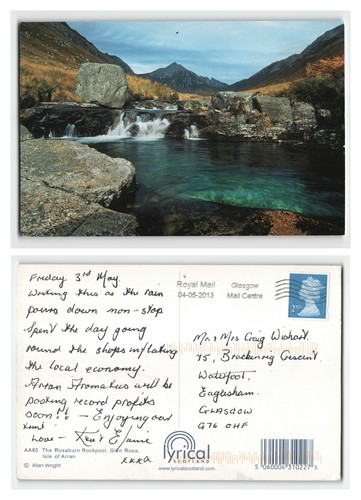 Friday 3rd May.
Writing this as the rain
pours down non-stop
Spent the day going
round the shops inflating
the local economy.
Arran Aromatics will be
posting record profits
soon!! - Enjoying our
Love - Elaine
xxxx
AA60 The Rosaburn Rockpool, Glen Rosa,
Isle of Arran
© Allan Wright
Royal Mail
04-05-2013
Glasgow
Mail Centre
2ND
Mr & Mrs Craig Wishart
75, Brackenrig Crescent
Waterfoot,
Eaglesham.
GLASGOW
G76 0HF
lyrical
SCOTLAND
www.lyricalscotland.com
5 060004 310227 >